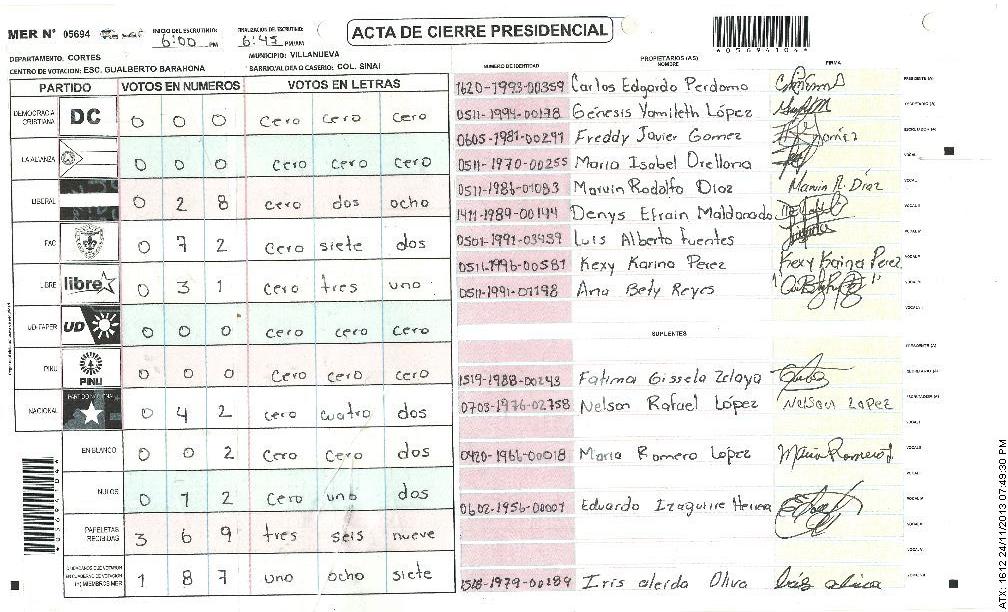 MER N° 05694
INICIO DEL ESCRUTINIO: 6:00 PM
FINALIZACION DEL ESCRUTINIO: 6:45 PM/AM
ACTA DE CIERRE PRESIDENCIAL
DEPARTAMENTO: CORTES
MUNICIPIO: VILLANUEVA
CENTRO DE VOTACION: ESC. GUALBERTO BARAHONA
BARRIO/ALDEA O CASERIO: COL. SINAI
PARTIDO VOTOS EN NUMEROS VOTOS EN LETRAS
DEMOCRACIA CRISTIANA DC 0 0 0 cero cero cero
LA ALIANZA 0 0 0 cero cero cero
LIBERAL 0 2 8 cero dos ocho
PAC 0 7 2 cero siete dos
LIBRE libre 0 3 1 cero tres uno
UD-FAPER UD 0 0 0 cero cero cero
PINU PINU 0 0 0 cero cero cero
NACIONAL 0 4 2 cero cuatro dos
EN BLANCO 0 0 2 cero cero dos
NULOS 0 1 2 cero uno dos
PAPELETAS RECIBIDAS 3 6 9 tres seis nueve
1 8 7 uno ocho siete
NUMERO DE IDENTIDAD PROPIETARIOS (AS) NOMBRE FIRMA
1620-1993-00359 Carlos Edgardo Perdomo
0511-1994-00178 Génesis Yamileth López
0605-1981-00291 Freddy Javier Gomez
0511-1970-00255 Maria Isabel Orellana
0511-1986-01083 Marvin Rodolfo Diaz Marvin R. Díaz
1411-1989-00144 Denys Efrain Maldonado
0501-1991-03439 Luis Alberto Fuentes
0511-1996-00581 Kexy Karina Perez Kexy Karina Perez
0511-1991-01198 Ana Bety Reyes
SUPLENTES
1519-1988-00243 Fatima Gissela Zelaya
0703-1976-02758 Nelson Rafael López Nelson Lopez
0420-1966-00018 Maria Romero Lopez Maria Romero L
0602-1956-00007 Eduardo Izaguirre Herrera
1518-1979-00189 Iris aleida Oliva
ATX: 1612 24/11/2013 07:49:30 PM